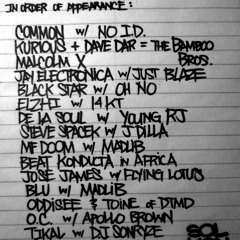 IN ORDER OF APPEARANCE:
COMMON w/ NO I.D.
KURIOUS + DAVE DAR = THE BAMBOO
BROS.
MALCOLM X
JAY ELECTRONICA w/ JUST BLAZE
BLACK STAR w/ OH NO
ELZHI w/ 14 KT
DE LA SOUL w/ YOUNG RJ
STEVE SPACEK w/ J DILLA
MF DOOM w/ MADLIB
BEAT KONDUCTA IN AFRICA
JOSÉ JAMES w/ FLYING LOTUS
BLU w/ MADLIB
ODDISEE & TOINE OF DTMD
O.C. w/ APOLLO BROWN
TIKAL w/ DJ SONRYZE
SOL